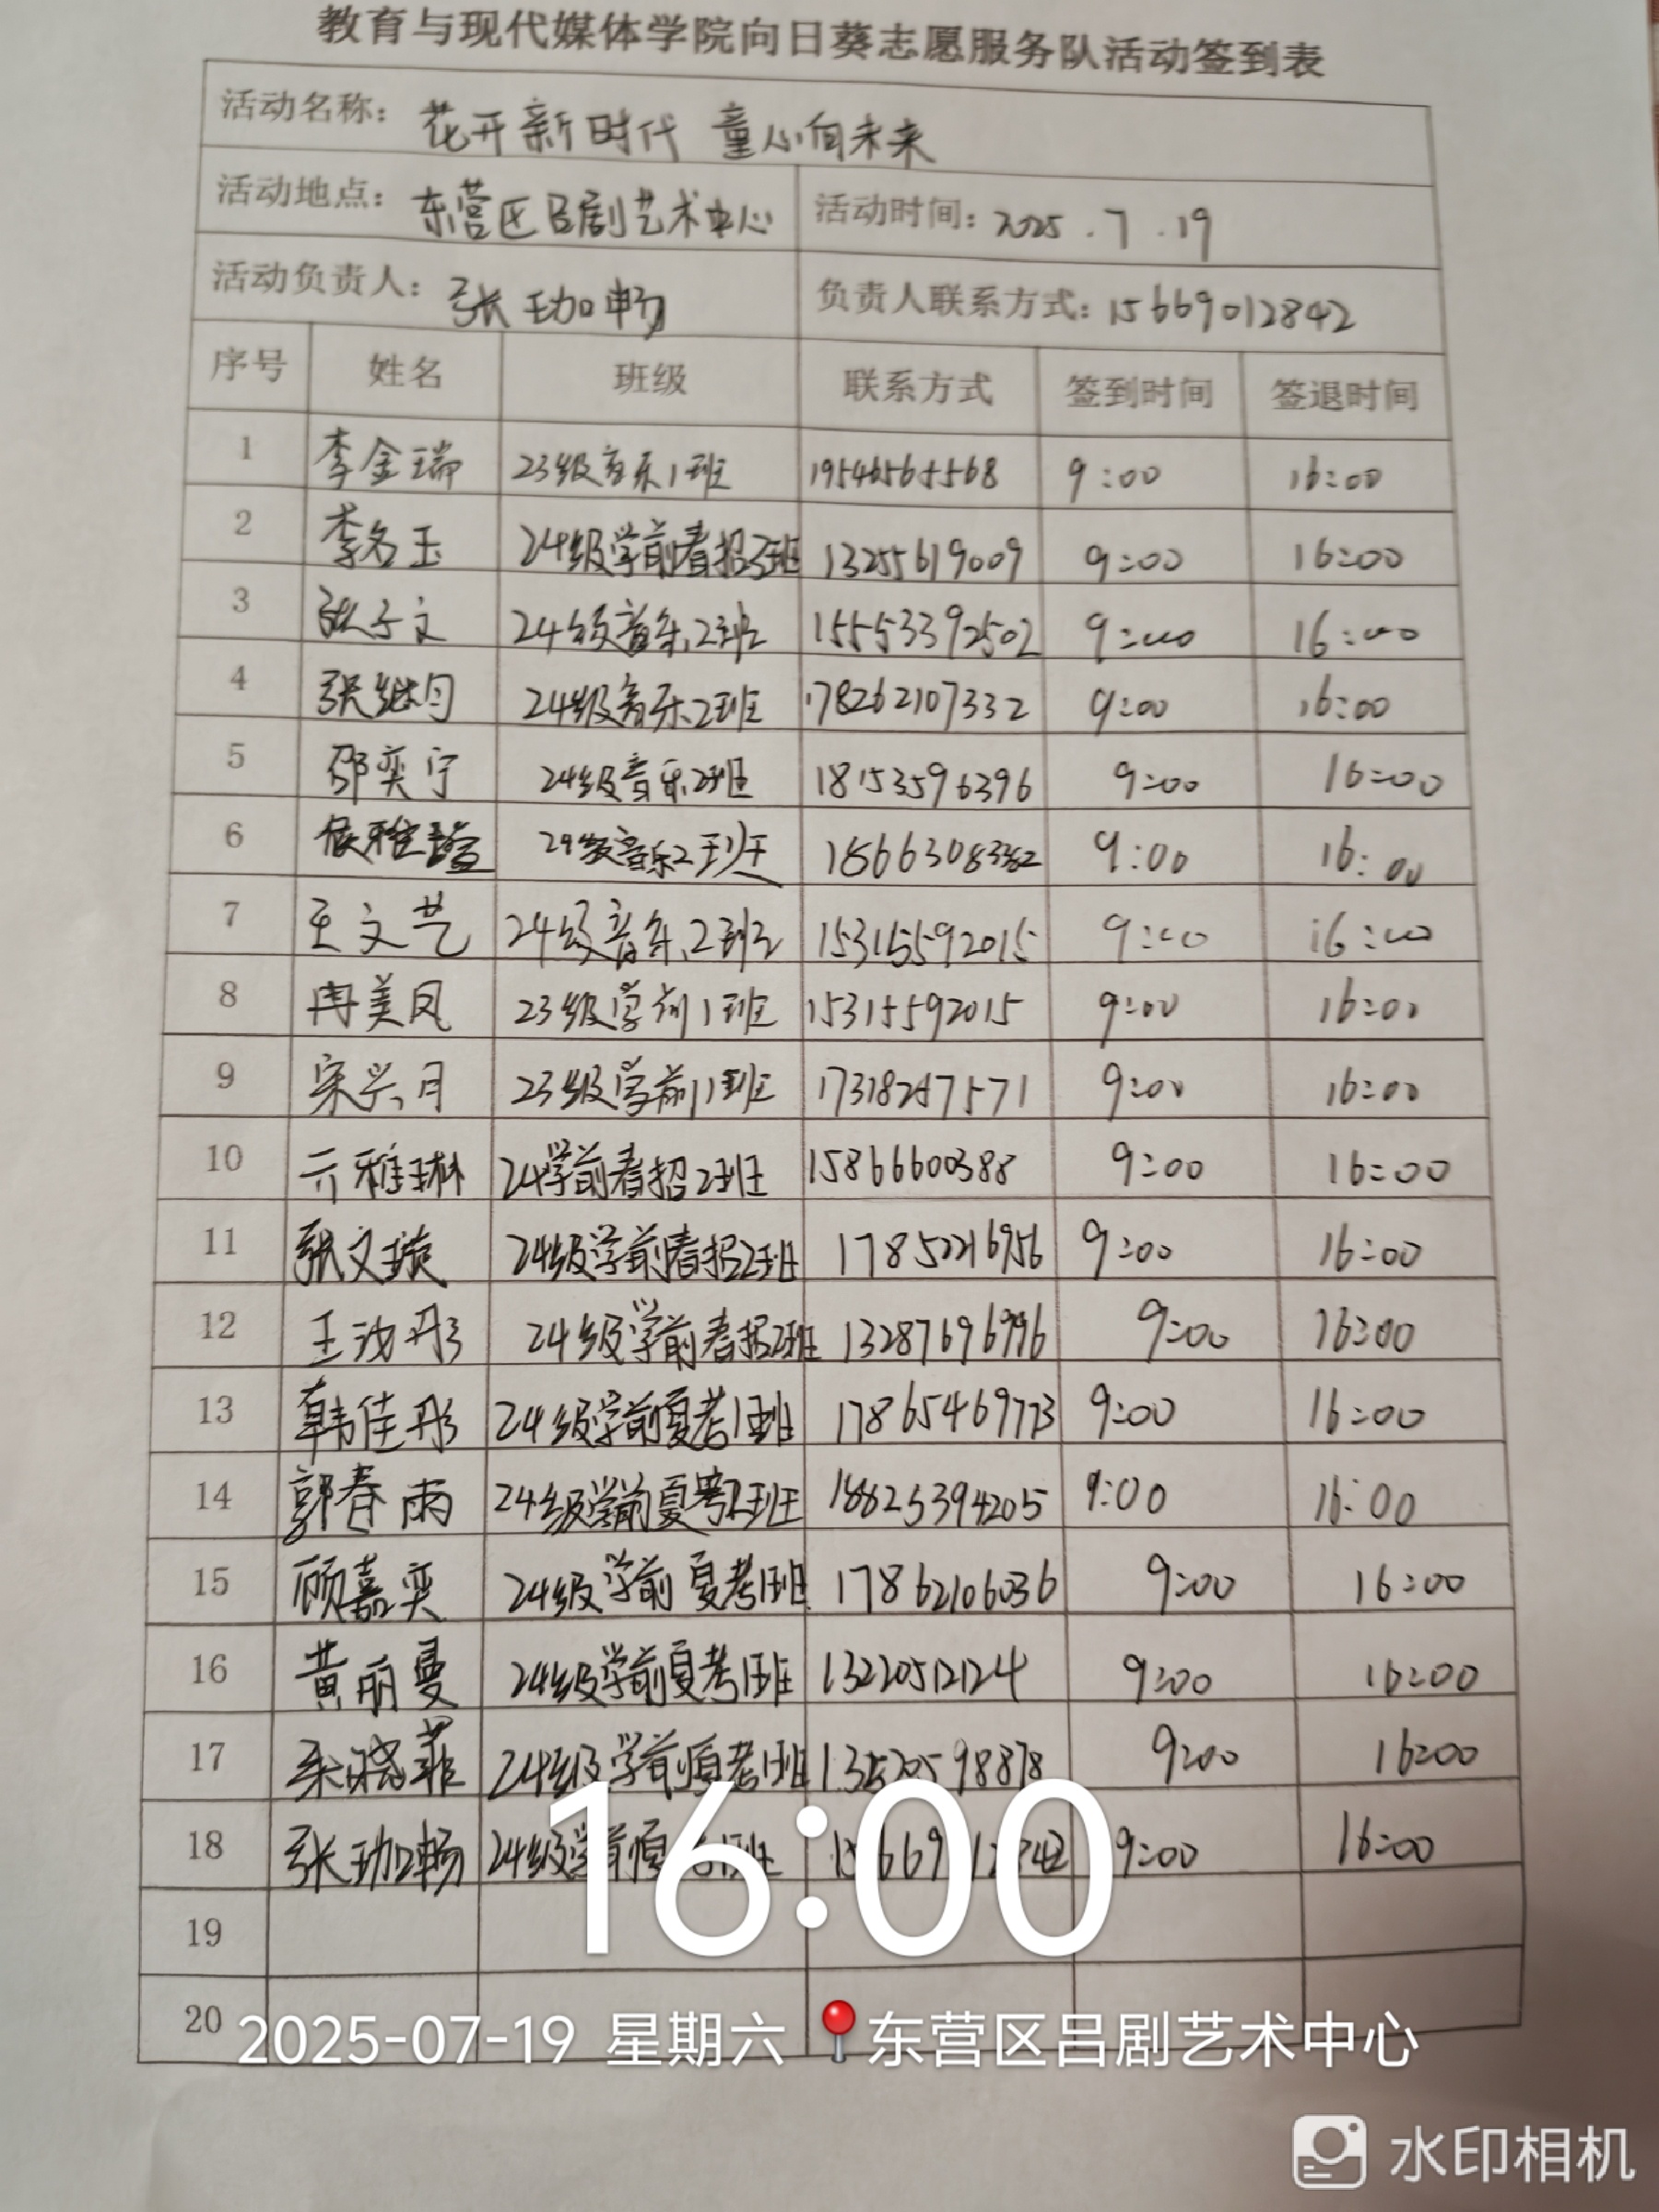 教育与现代媒体学院向日葵志愿服务队活动签到表
活动名称: 花开新时代 童心向未来
活动地点: 东营区吕剧艺术中心 活动时间: 2025.7.19
活动负责人: 张珈畅 负责人联系方式: 15669012842
序号 姓名 班级 联系方式 签到时间 签退时间
1 李金瑞 23级音乐1班 19546565568 9:00 16:00
2 李名玉 24级学前春招2班 13255619009 9:00 16:00
3 张子文 24级音乐2班 15553392502 9:00 16:00
4 张继月 24级音乐2班 178262107332 9:00 16:00
5 邵奕宁 24级音乐2班 18153596396 9:00 16:00
6 张雅萱 24级音乐2班 9:00 16:00
7 王文艺 24级音乐2班 15315592015 9:00 16:00
8 冉美凤 23级学前1班 15315592015 9:00 16:00
9 宋兴月 23级学前1班 17318247571 9:00 16:00
10 亓雅琳 24学前春招2班 15866600388 9:00 16:00
11 张文璇 24级学前春招2班 17852216956 9:00 16:00
12 王 彤 24级学前春招2班 13287696996 9:00 16:00
13 韩佳彤 24级学前夏考1班 17865469773 9:00 16:00
14 郭春雨 24级学前夏考2班 18825394205 9:00 16:00
15 顾嘉奕 24级学前夏考1班 17862106036 9:00 16:00
16 黄丽曼 24级学前夏考1班 13220512124 9:00 16:00
17 朱晓菲 24级学前夏考1班 9:00 16:00
18 张珈畅 24级学前夏 1班 9:00 16:00
16:00
19
20
2025-07-19 星期六 东营区吕剧艺术中心
水印相机